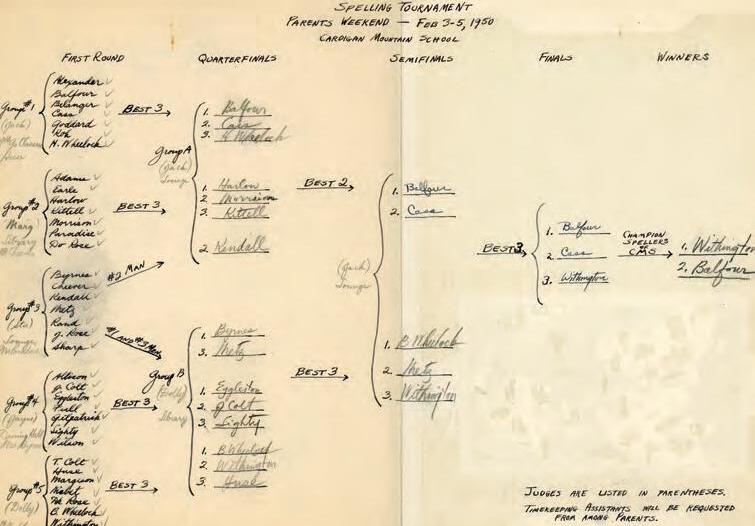 SPELLING TOURNAMENT
PARENTS WEEKEND — FEB 3-5, 1950
CARDIGAN MOUNTAIN SCHOOL
FIRST ROUND
QUARTERFINALS
SEMIFINALS
FINALS
WINNERS
Group #1
(Jack)
Alexander ✓
Balfour ✓
Belanger ✓
Cass ✓
Goddard ✓
H. Wheelock ✓
BEST 3
Group #2
(Marg)
Library
Adams ✓
Earle ✓
Harlow ✓
Kittell ✓
Morrison ✓
Paradise ✓
Do Rose ✓
BEST 3
Group #3
(Stu)
Lounge
Byrnes ✓
Cheever ✓
Kendall ✓
Metz ✓
Rand ✓
J. Rose ✓
Sharp ✓
#2 MAN
#1 AND #3 MAN
Group #4
Allison ✓
J. Colt ✓
Eggleston ✓
Fitzpatrick ✓
Lighty ✓
Wilson ✓
BEST 3
Group #5
(Dolly)
T. Colt ✓
Huse ✓
Margeson ✓
Nisbet ✓
B. Wheelock ✓
Withington ✓
BEST 3
Group A
(Jack)
Lounge
1. Balfour
2. Cass
3. H Wheelock
1. Harlow
2. Morrison
3. Kittell
2. Kendall
BEST 2
Group B
(Dolly)
Library
1. Byrnes
3. Metz
1. Eggleston
2. J Colt
3. Lighty
1. B Wheelock
2. Withington
3. Huse
BEST 3
(Jack)
Lounge
1. Balfour
2. Cass
1. B Wheelock
2. Metz
3. Withington
BEST 3
1. Balfour
2. Cass
3. Withington
CHAMPION
SPELLERS
OF
CMS
1. Withington
2. Balfour
JUDGES ARE LISTED IN PARENTHESES.
TIMEKEEPING ASSISTANTS WILL BE REQUESTED
FROM AMONG PARENTS.